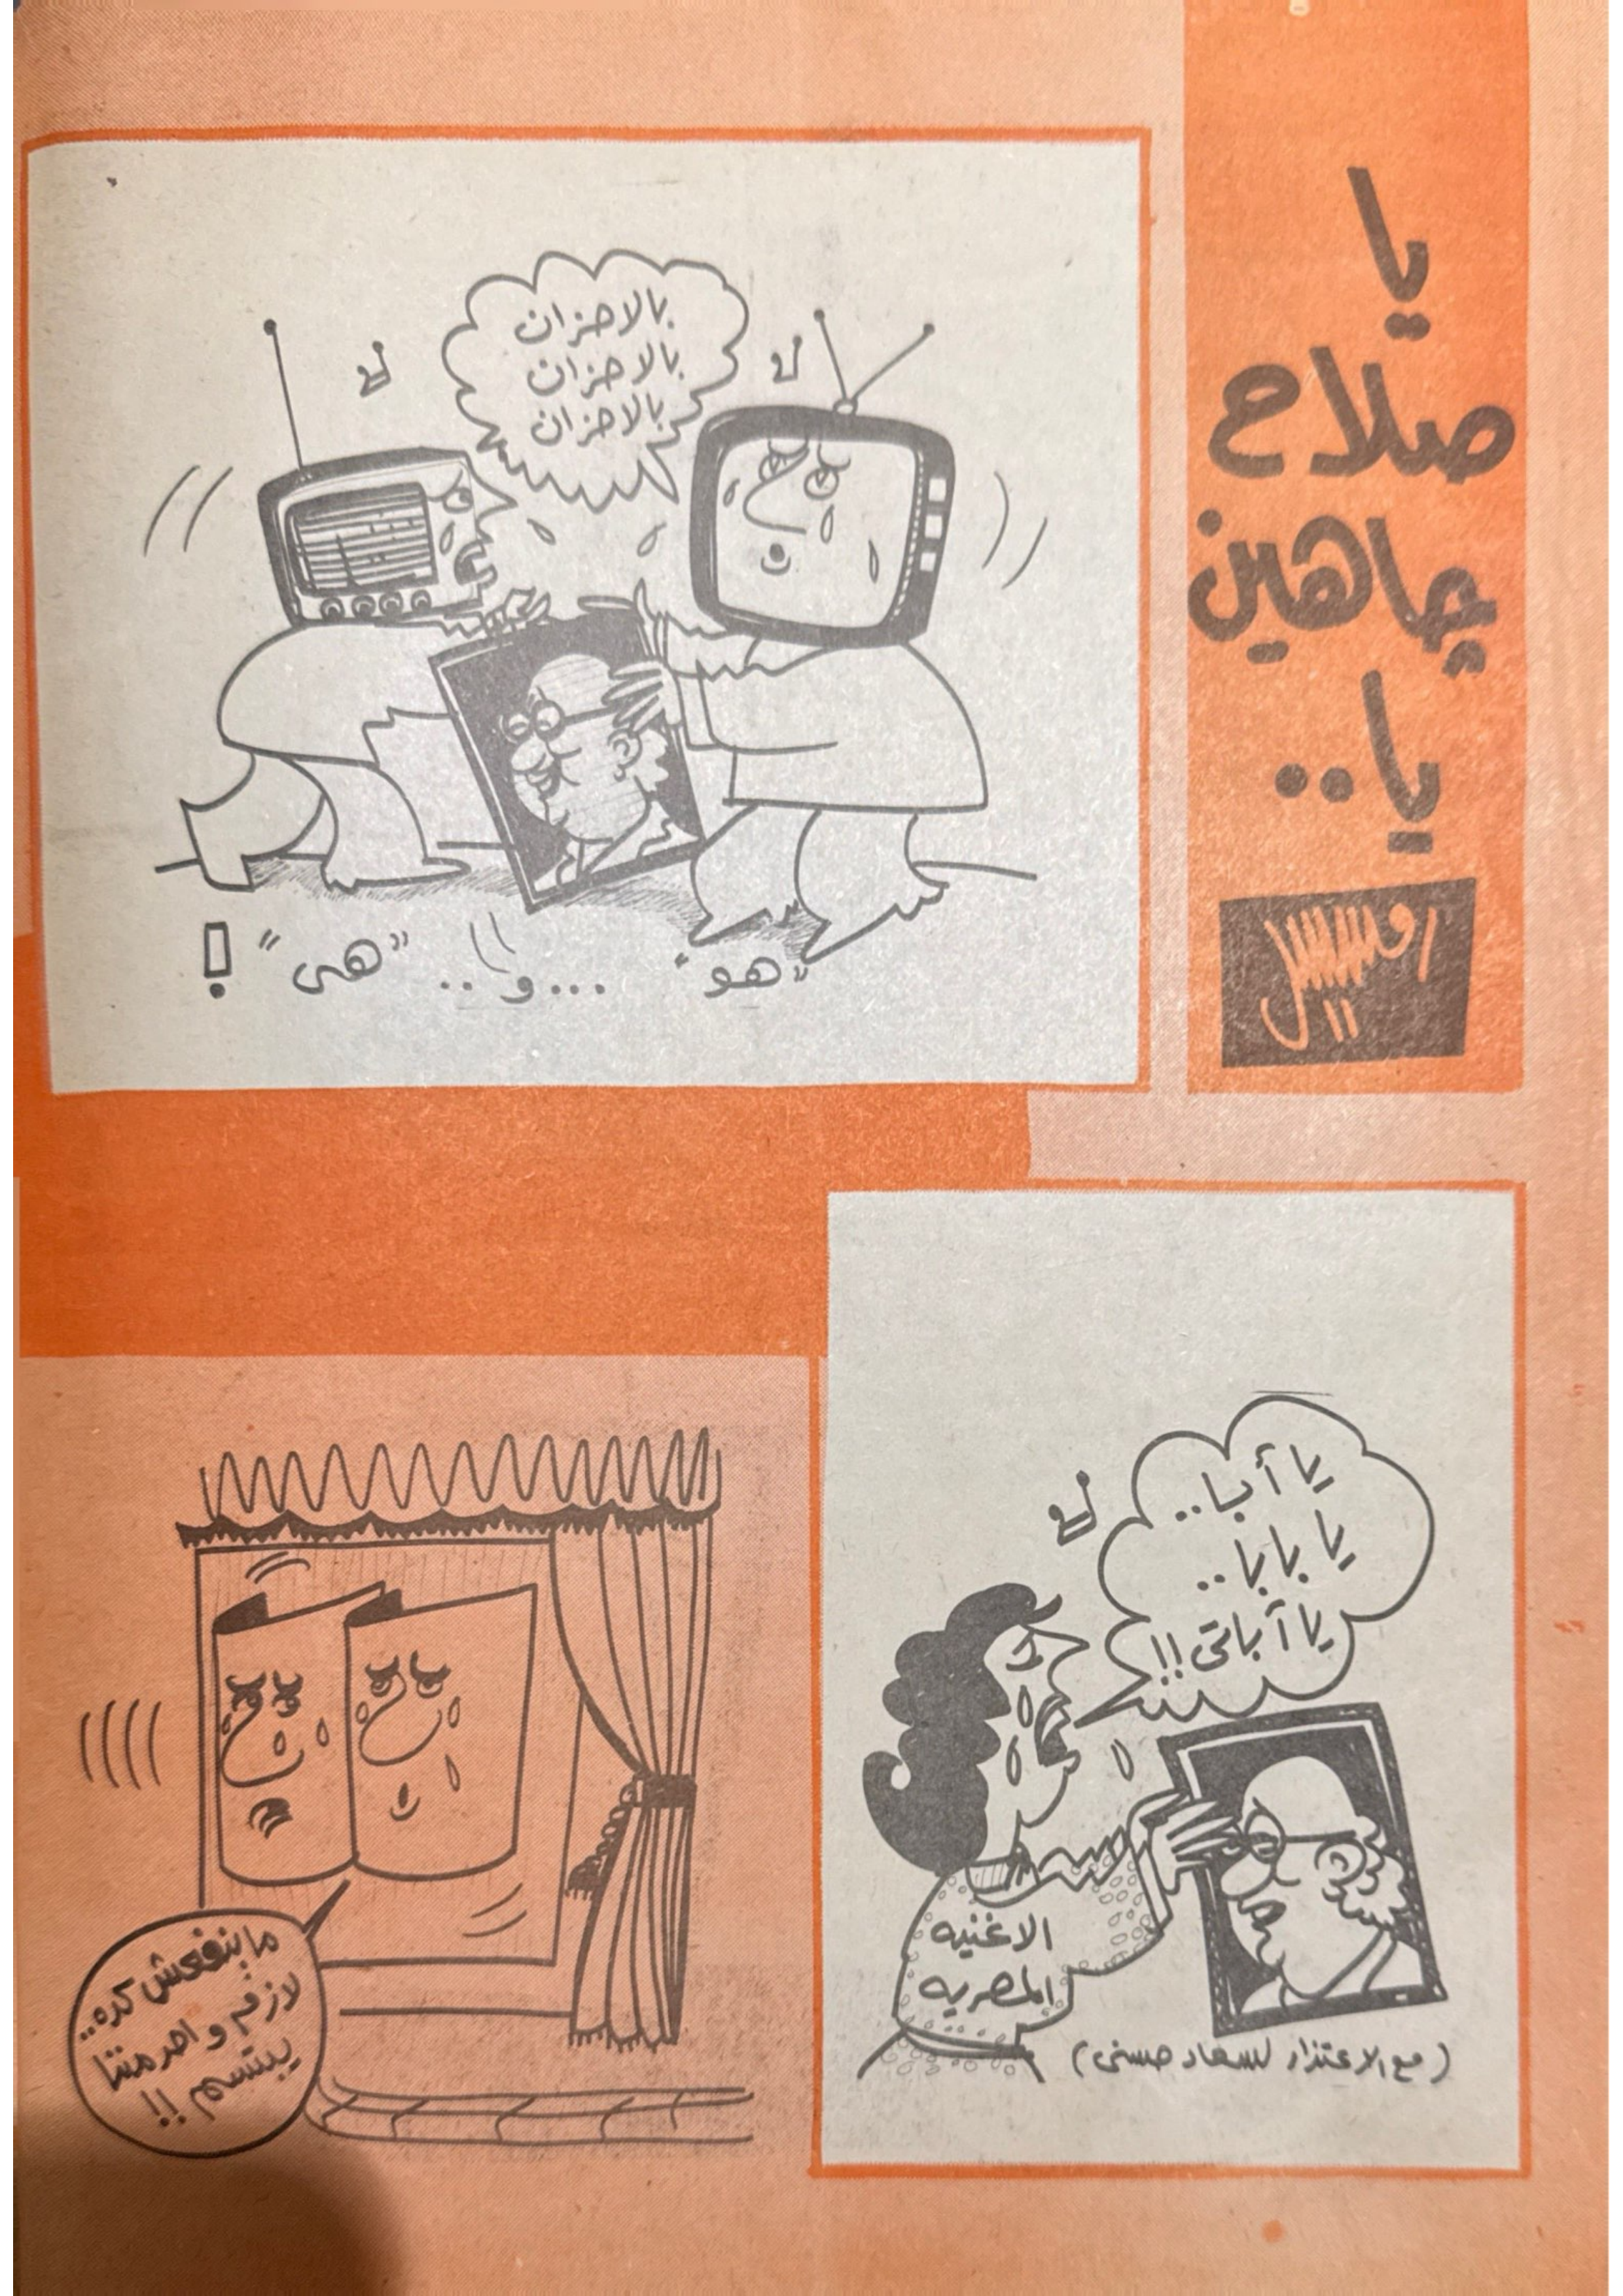 يا
صلاح
چاهين
يا..
رمسيس
بالاحزان
بالاحزان
بالاحزان
"هو" ...و.. "هى" !
يا أبا..
يا بابا..
يا آباتى!!
الاغنيه
المصريه
(مع الاعتذار لسعاد حسنى)
ما ينفعش كده..
لازم واحد مننا
يبتسم !!